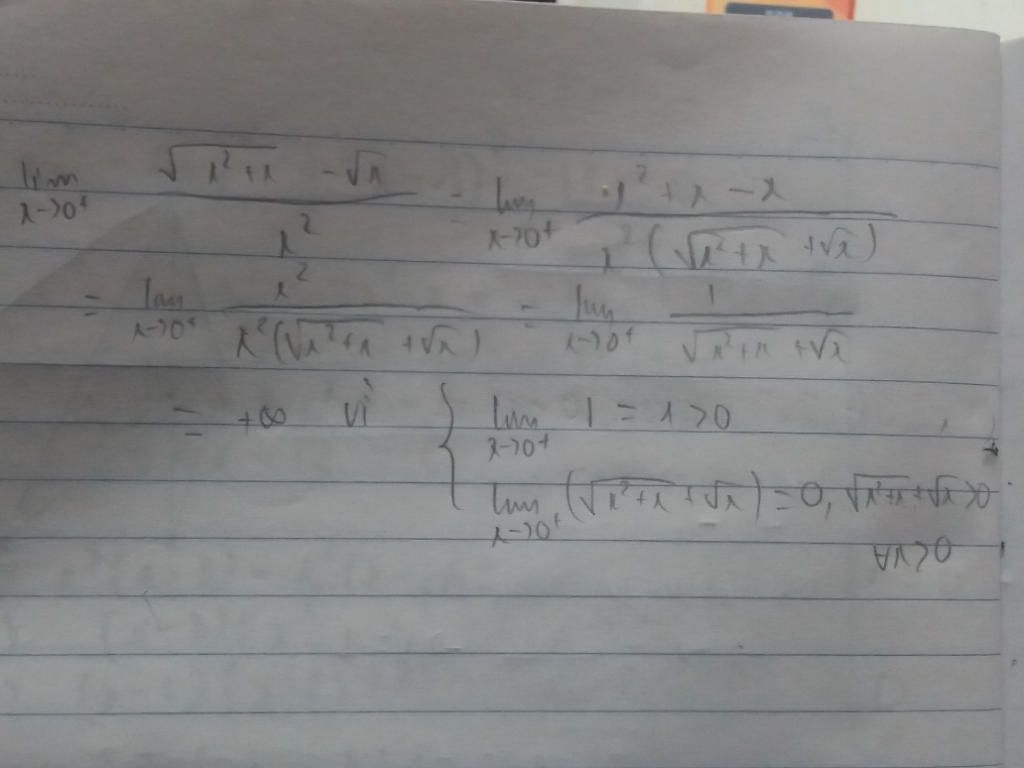 lim x→0⁺ (√(x²+x) − √x)/x² = lim x→0⁺ (x²+x−x)/(x²(√(x²+x) + √x))
= lim x→0⁺ x²/(x²(√(x²+x) + √x)) = lim x→0⁺ 1/(√(x²+x) + √x)
= +∞ vì { lim x→0⁺ 1 = 1 > 0
lim x→0⁺ (√(x²+x) + √x) = 0, √(x²+x) + √x > 0
∀x>0